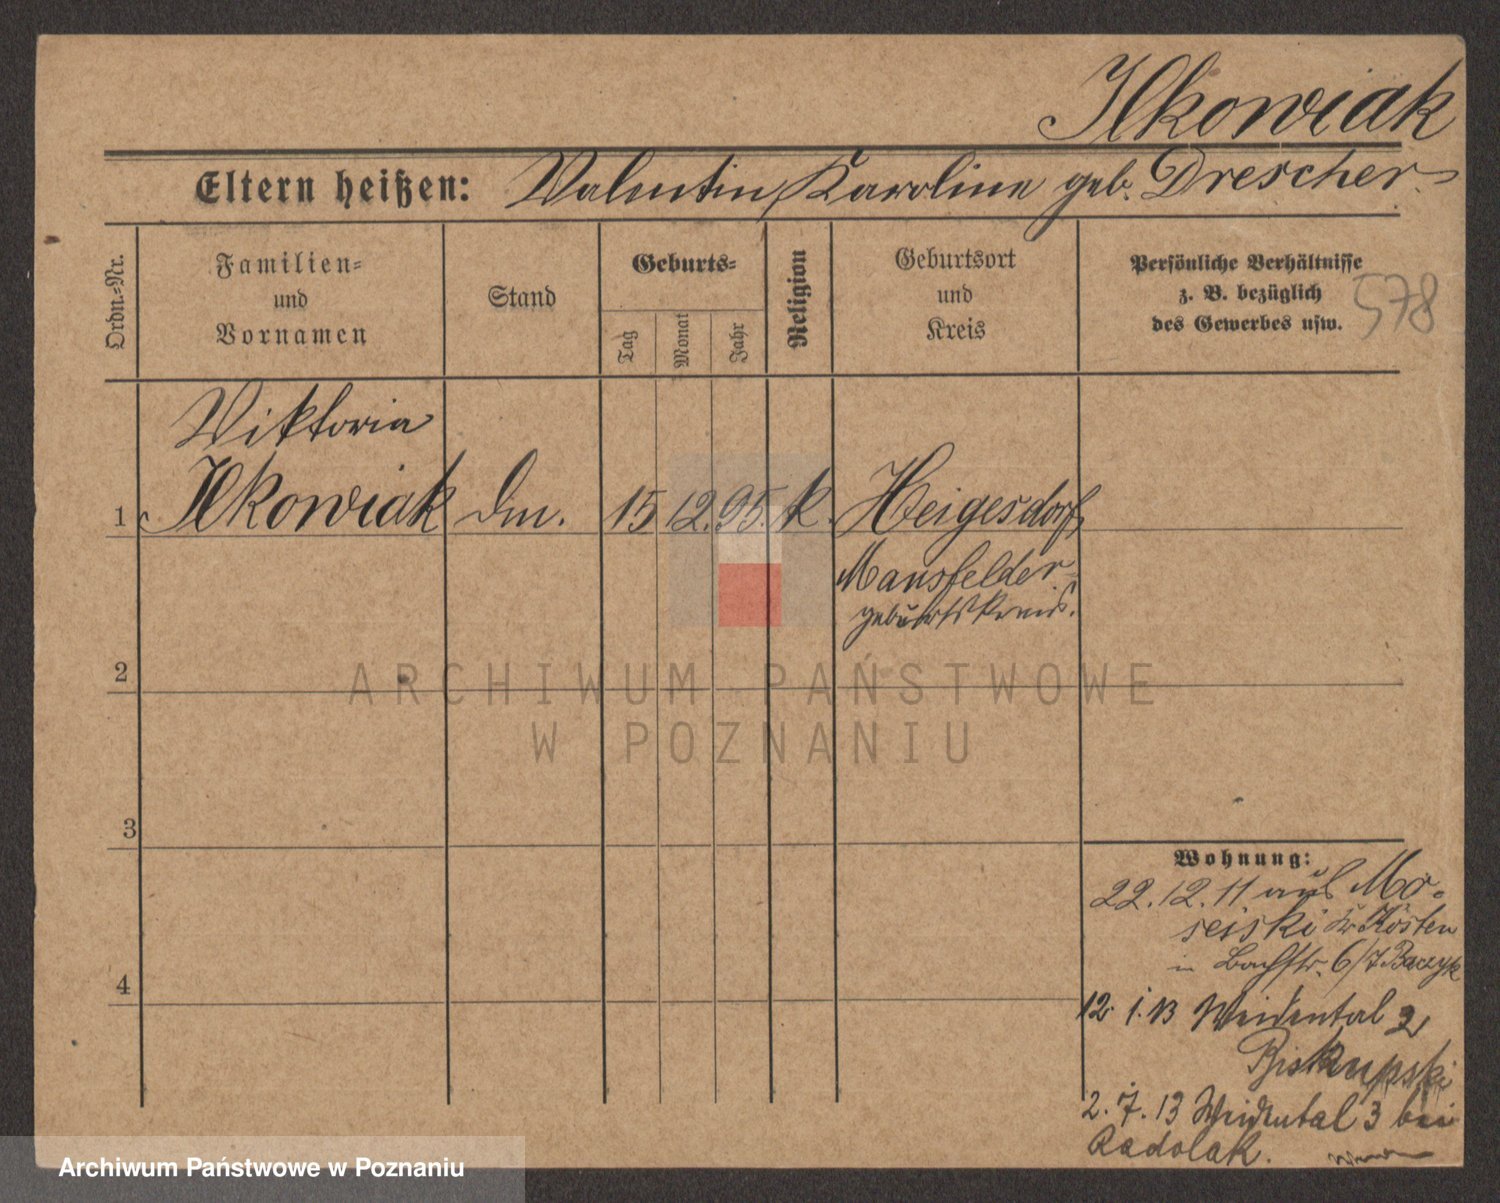 Ilkowiak
Eltern heißen: Valentin, Karoline geb. Drescher
Ordn.-Nr.
Familien-
und
Vornamen
Stand
Geburts-
Tag
Monat
Jahr
Religion
Geburtsort
und
Kreis
Persönliche Verhältnisse
z. B. bezüglich
des Gewerbes usw.
578
Viktoria
1 Ilkowiak Dm. 15 12. 95. k. Heigesdorf,
Mansfelder-
gebirtskreis.
ARCHIWUM PAŃSTWOWE
W POZNANIU
2
3
4
Wohnung:
22.12.11 aus Mo-
seiski Kr Kosten
in Bachstr. 6/7 Baczyk
12. 1. 13 Weidental 2
Biskupski
2. 7. 13 Weidental 3 bei
Radolak.
Archiwum Państwowe w Poznaniu